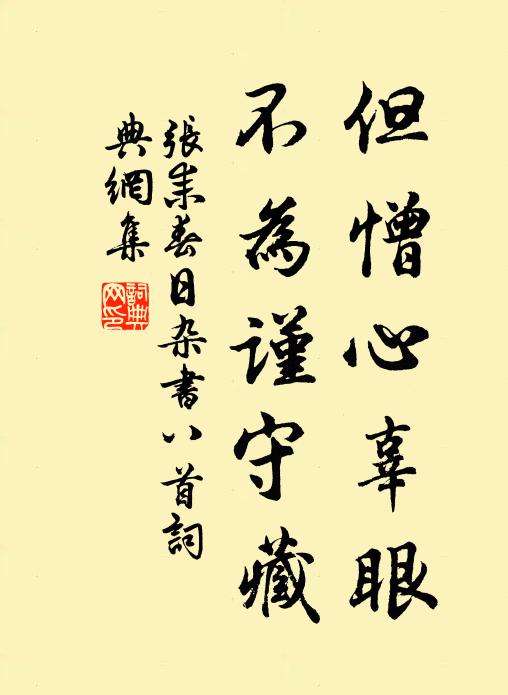 但憎心辜眼
不為謹守藏
張耒春日杂書八首詞
典網集
詞典
网印